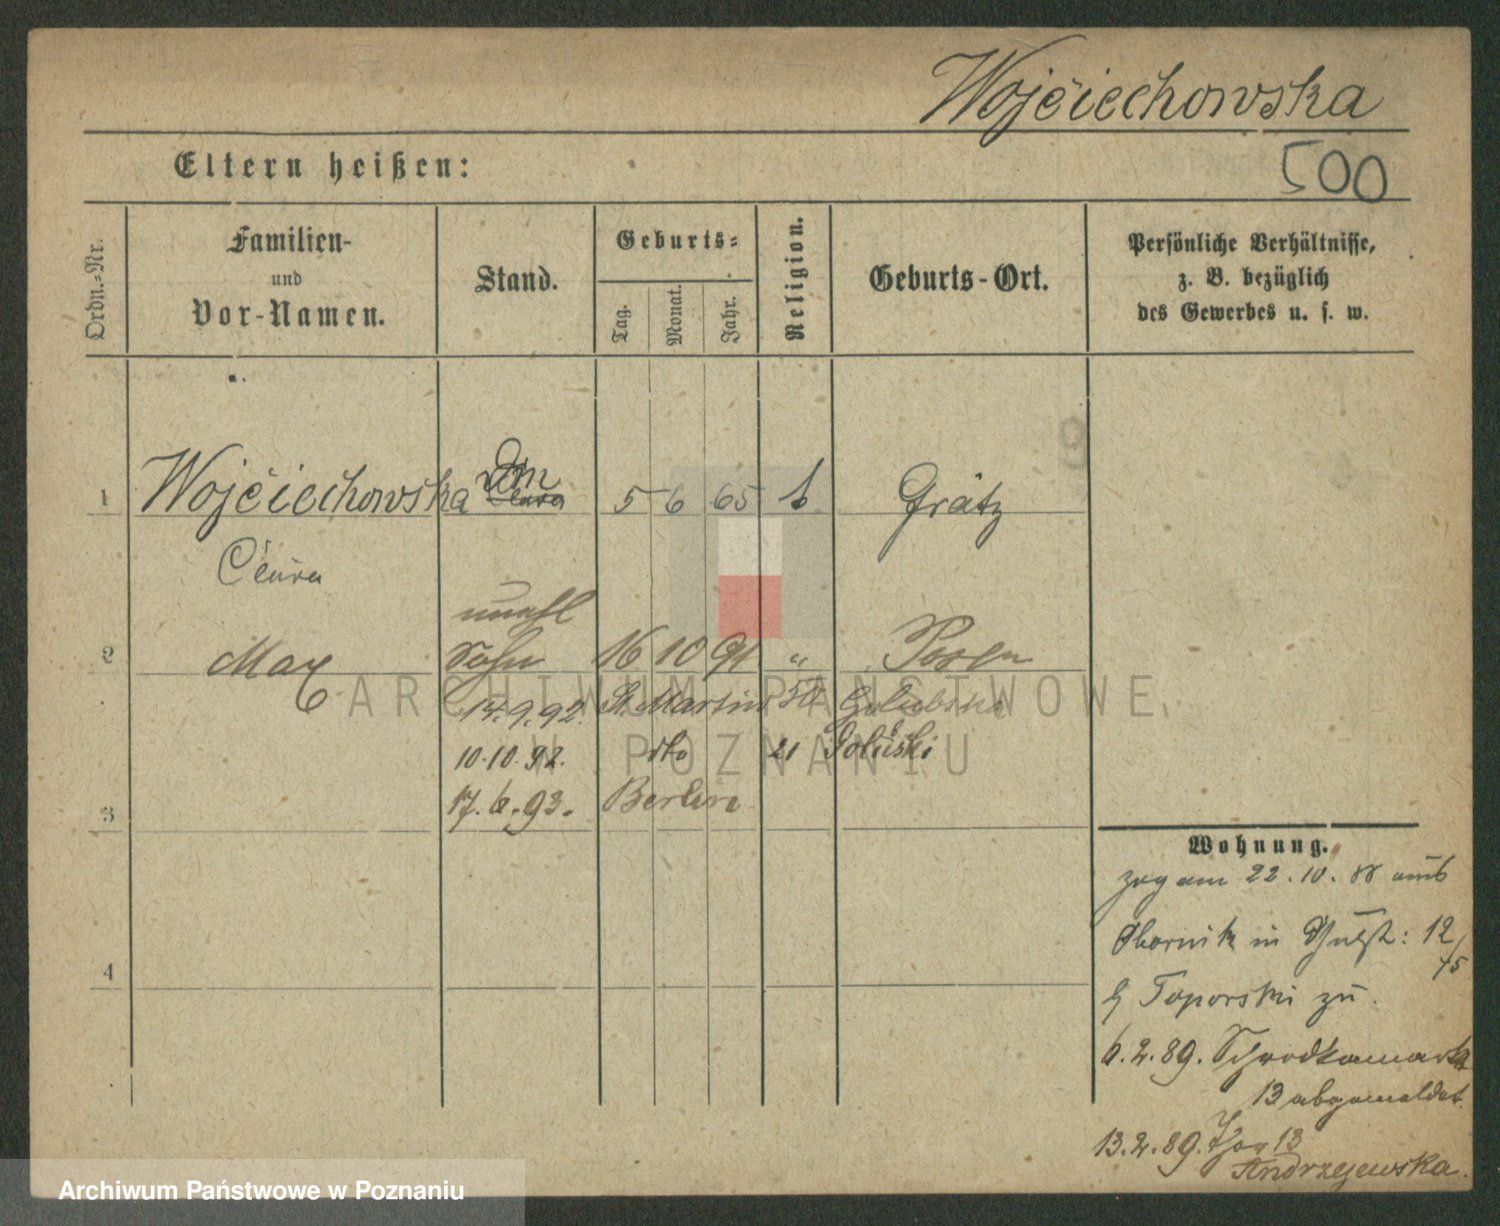 Wojciechowska
Eltern heißen:
500
Ordn.-Nr.
Familien-
und
Vor-Namen.
Stand.
Geburts-
Tag.
Monat.
Jahr.
Religion.
Geburts-Ort.
Persönliche Verhältnisse,
z. B. bezüglich
des Gewerbes u. s. w.
1 Wojciechowska 5 6 65 k Grätz
unehl
2 Max Sohn 16 10 91 " Posen
14.9.92. St. Martin 50
10.10.92. dto 21
3 17.6.93. Berlin
4
Wohnung.
zog am 22.10.88 aus
Obornik in 12/75
b Toporski zu.
6.2.89. Schrodkamarkt
13 abgemeldet
13.2.89. Thor 13
Andrzejewska.
ARCHIWUM PAŃSTWOWE
W POZNANIU
Archiwum Państwowe w Poznaniu